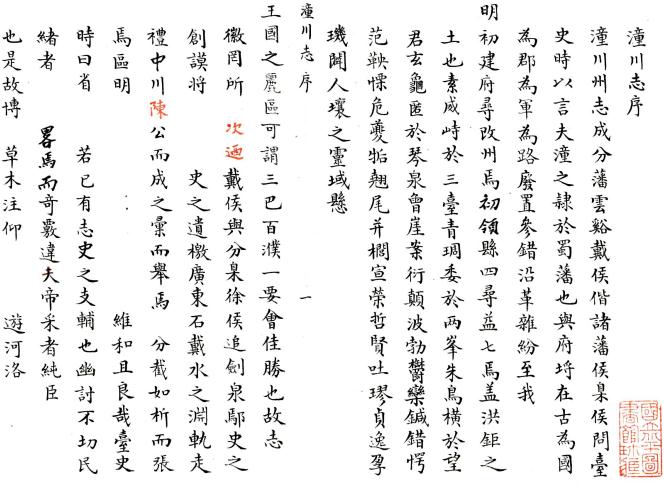 潼川志序
潼川州志成分藩雲谿戴侯偕諸藩侯臬侯問臺
史時以言夫潼之隸於蜀藩也與府埒在古為國
為郡為軍為路廢置參錯沿革雜紛至我
明初建府尋改州馬初領縣四尋益七馬盖洪鉅之
土也素威峙於三臺青琱委於兩峯朱鳥橫於望
君玄龜匿於琴泉魯崖衍顛波勃鬱欒鍼錯愕
范鞅慄危夔垢翹尾并櫚宣榮哲賢吐璆貞逸孕
璣開人壤之靈域懸
潼川志序
一
王國之麗區可謂三巴百濮一要會佳勝也故志
徽罔所 次迺戴侯與分臬徐侯追劍泉鄢史之
創謨将 史之遺檄廣東石戴水之淵軌走
禮中川陳公而成之彙而舉馬 分裁如析而張
馬區明 維和且良哉臺史
時曰省 若已有志史之支輔也幽討不切民
緒者 畧馬而奇覈違夫帝采者純臣
也是故博 草木注仰 遊河洛